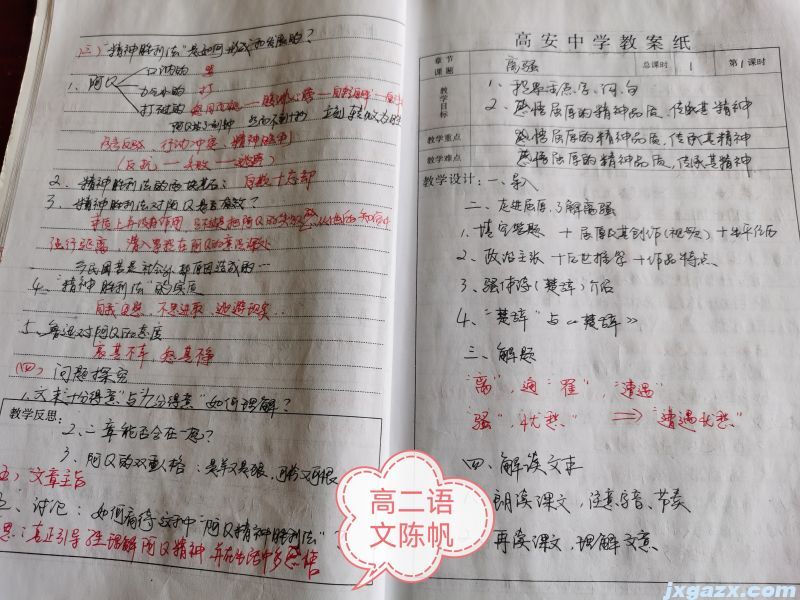 (三)"精神胜利法"是如何形成和发展的?
1、阿Q
口讷的 骂
力气小的 打
打不过的
(反抗) — 失败 —
2、精神胜利法的两块基石: 自欺 + 忘却
3、精神胜利法对阿Q是否有效?
4、"精神胜利法"的实质
自我安慰、不思进取、逃避现实
5、鲁迅对阿Q的态度
哀其不幸,怒其不争
(四)问题探究
1、文末"十分得意"与"九分得意"如何理解?
教学反思:
2、二章能否合在一起?
3、阿Q的双重人格:
五)文章主旨
讨论:如何看待这种"阿Q精神胜利法"
思:真正引导学生理解阿Q精神 并在生活中多
高安中学教案纸
章节
课题
离骚
总课时
1
第1课时
教学目标
1、掌握重点字、词、句
2、感悟屈原的精神品质,传承其精神
教学重点
感悟屈原的精神品质,传承其精神
教学难点
感悟屈原的精神品质,传承其精神
教学设计:一、导入
二、走进屈原,了解离骚
1、填空答题 + 屈原及其创作(视频) + 生平经历
2、政治主张 + 后世推崇 + 作品特点
3、骚体诗(楚辞)介绍
4、"楚辞"与《楚辞》
三、解题
"离",通"罹","遭遇"
"骚",忧愁 ⟹ "遭遇忧愁"
四、解读文本
朗读课文,注意字音、节奏
再读课文,理解文意
高二语
文陈帆
jxgazx.com